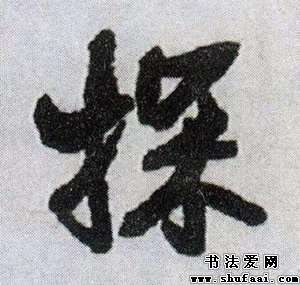 探
书法爱网
www.shufaai.com